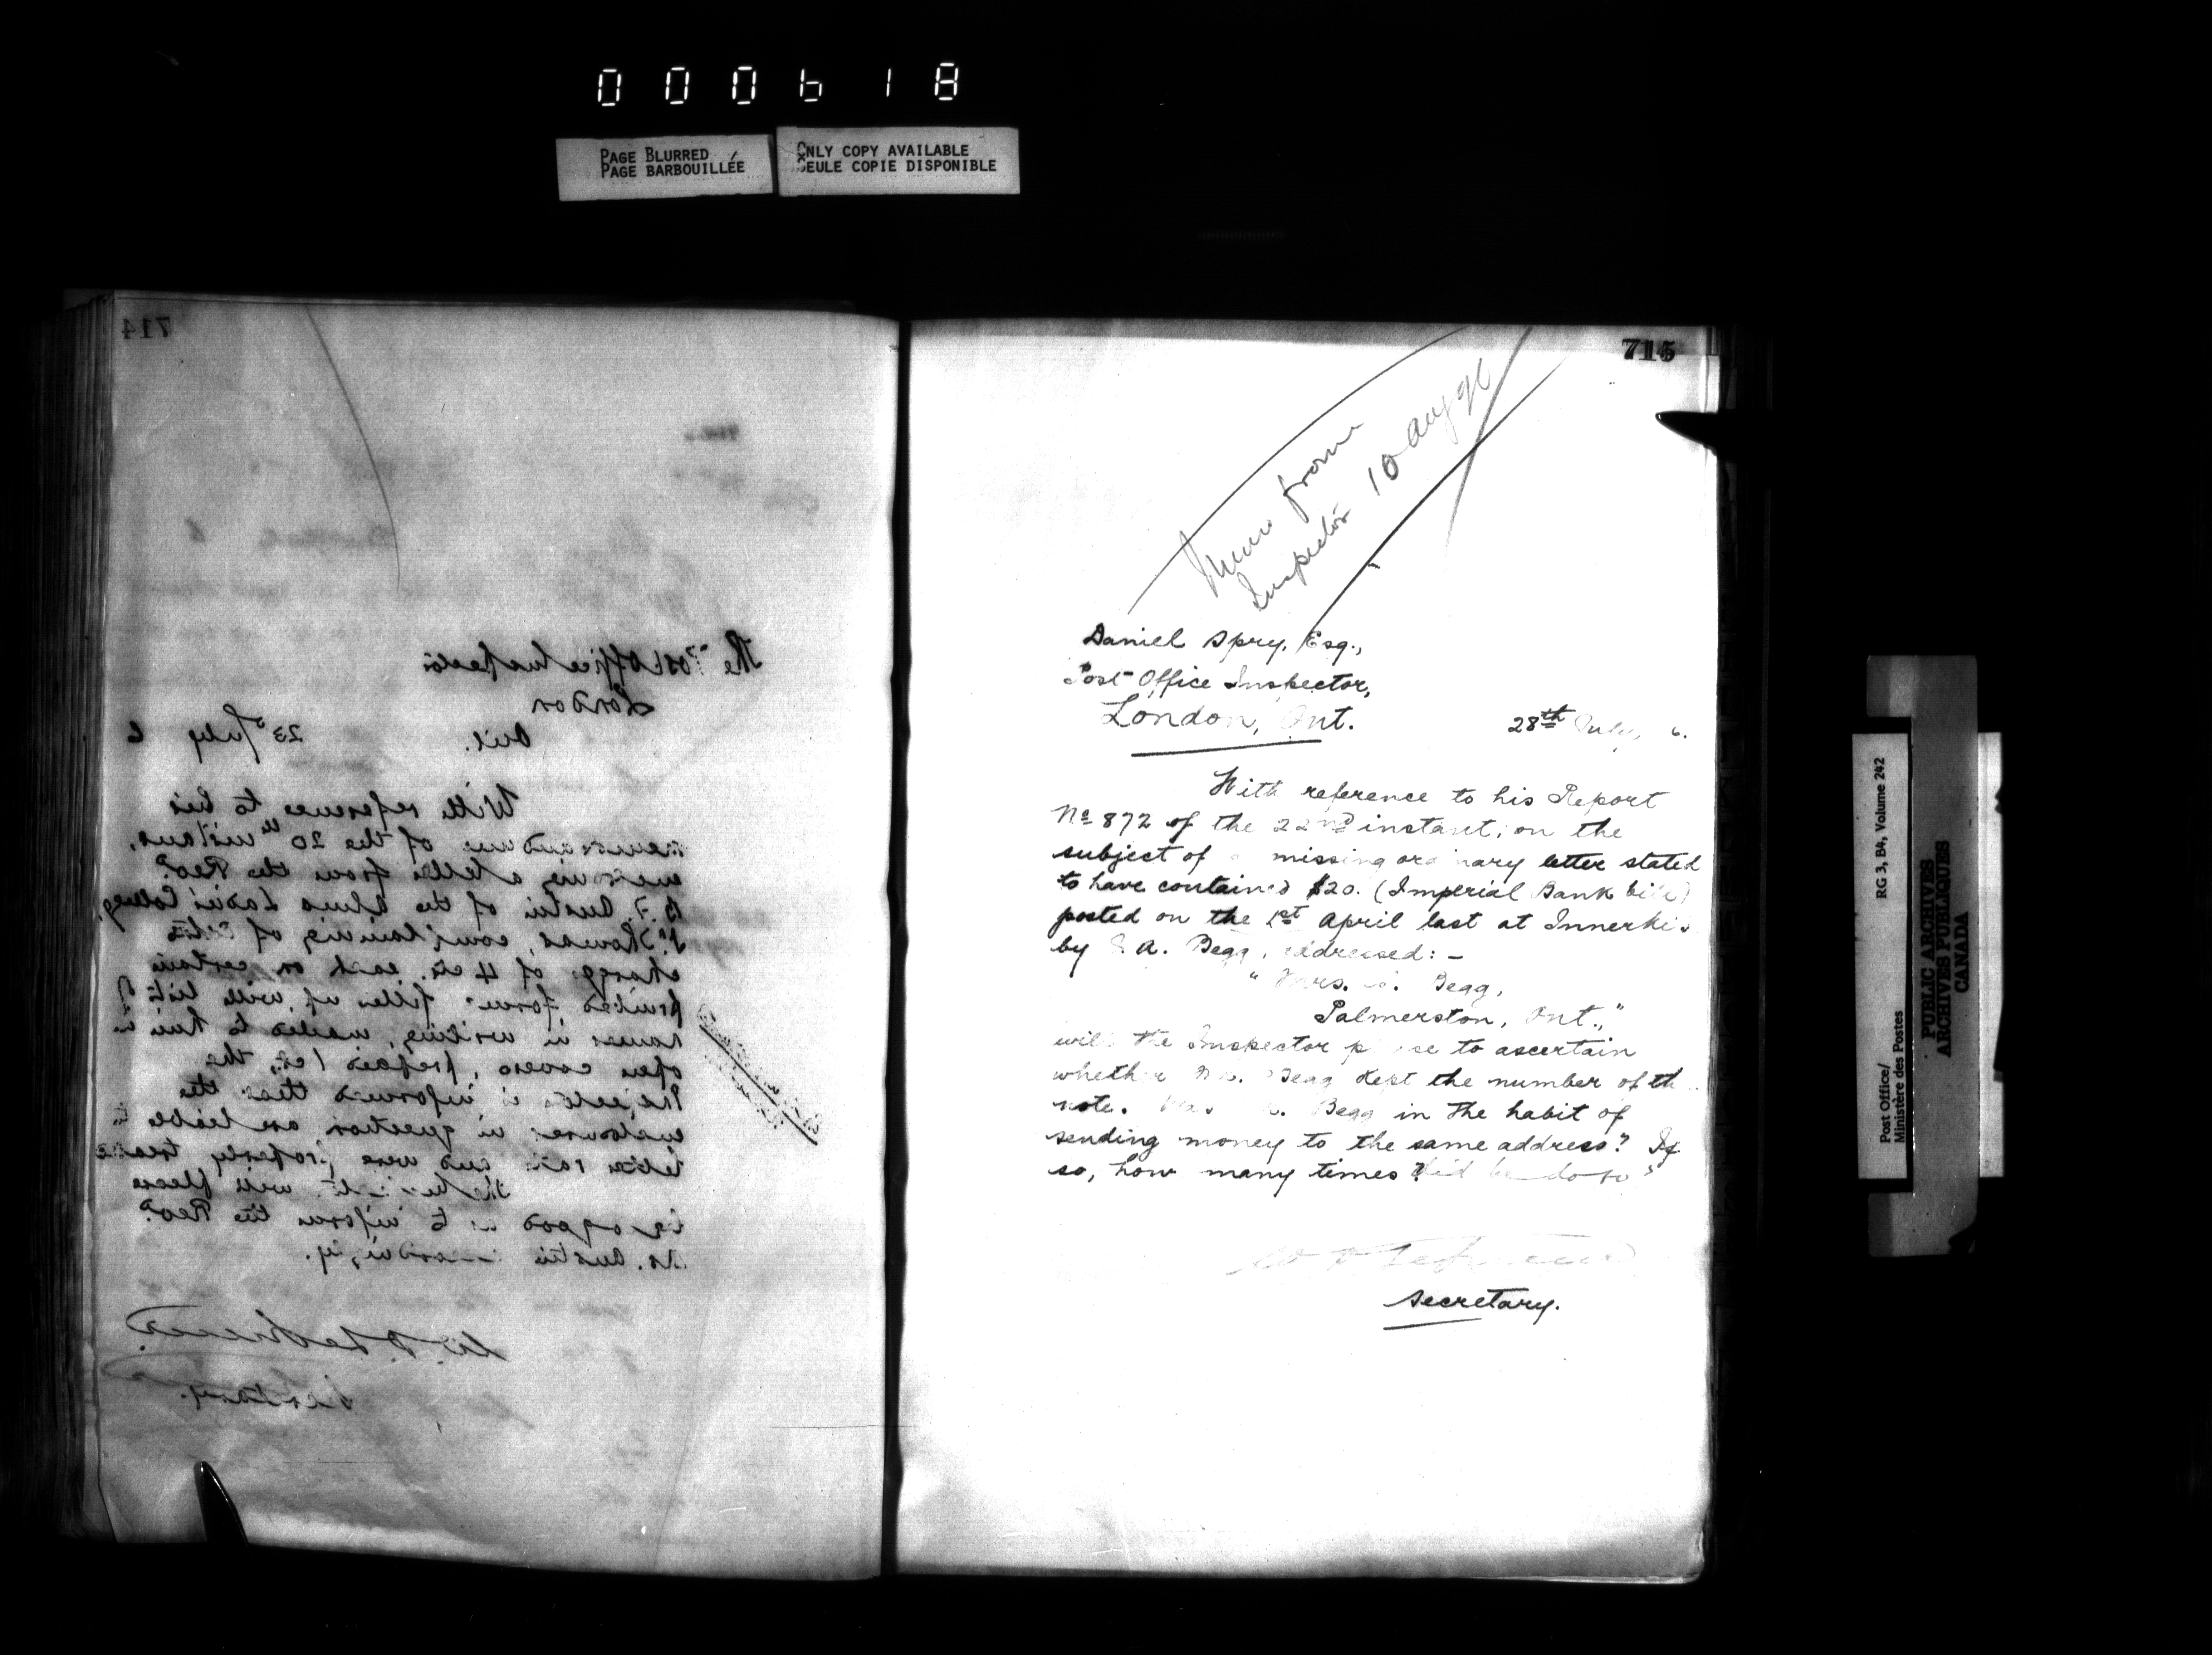 000618
PAGE BLURRED
PAGE BARBOUILLÉE
ONLY COPY AVAILABLE
SEULE COPIE DISPONIBLE
714
The Post Office Inspector
London
Ont. 23d July 6
With reference to his
memorandum of the 20th instant,
enclosing a letter from the Revd
B. F. Austin of the Alma Ladies' College,
St. Thomas, complaining of
charge of 4 cts. each on certain
printed forms filled up with list of
names in writing, mailed to him in
open covers, prepaid 1 ct., the
Inspector is informed that the
enclosures in question are liable to
letter rate and were properly treated
The Inspector will please
be so good as to inform the Revd
Mr. Austin accordingly.
Secretary.
715
Memo from
Inspector 10 Aug 96
Daniel Spry, Esq.,
Post Office Inspector,
London, Ont. 28th July, 6.
With reference to his Report
No 872 of the 22nd instant, on the
subject of missing ordinary letter stated
to have contained $20. (Imperial Bank bill)
posted on the 1st April last at
by A. Begg, addressed: —
" Mrs. Begg,
Palmerston, Ont.,"
will the Inspector please to ascertain
whether Mr. Begg kept the number of the
note. Was Mr. Begg in the habit of
sending money to the same address? If
so, how many times did he do so?
Secretary.
RG 3, B4, Volume 242
Post Office/
Ministère des Postes
PUBLIC ARCHIVES
ARCHIVES PUBLIQUES
CANADA